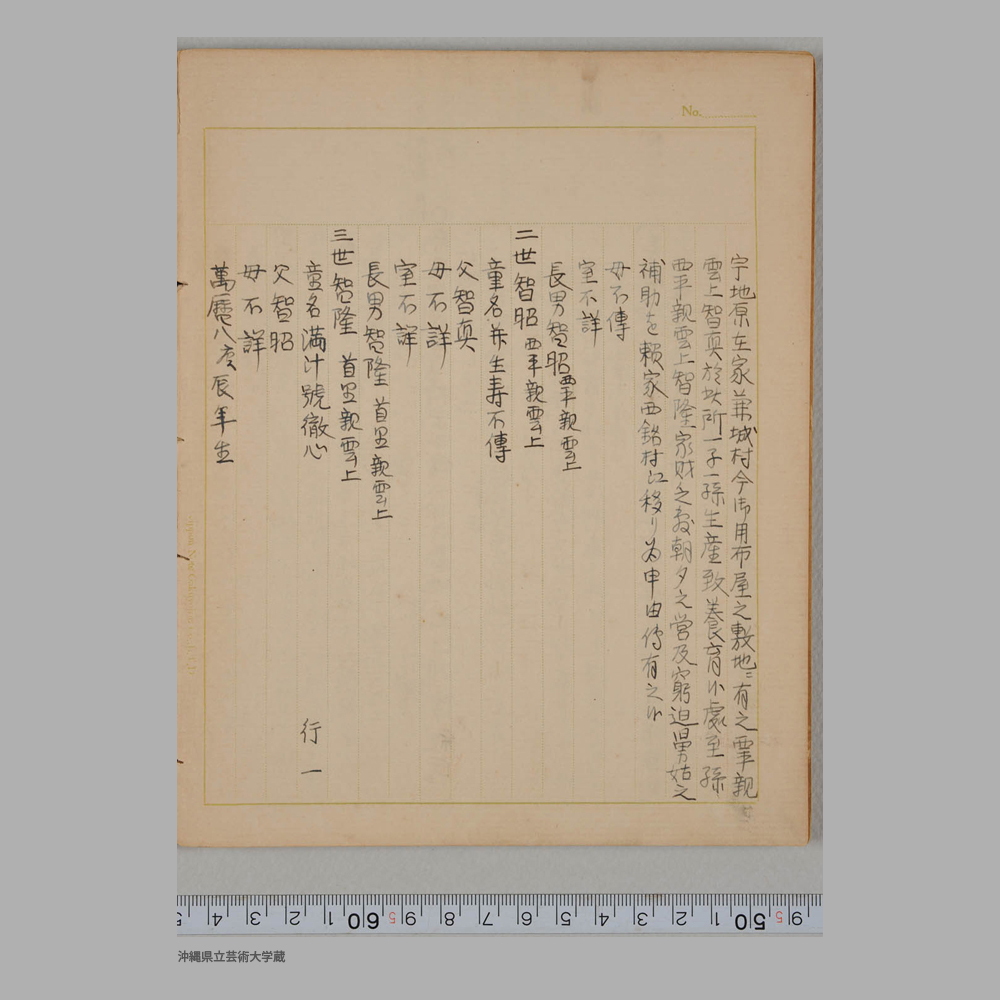 No.
宇地原在家兼城村今御用布屋之敷地ニ有之西平親
雲上智真於此所一子一孫生産致養育候處至孫
西平親雲上智隆家財乏敷朝夕之営及窮迫舅姑之
補助を頼家西銘村江移り為申由傳有之候
母不傳
室不詳
長男智昭西平親雲上
二世智昭 西平親雲上
童名并生寿不傳
父智真
母不詳
室不詳
長男智隆 首里親雲上
三世智隆 首里親雲上
童名満汁號徹心 行一
父智昭
母不詳
萬暦八庚辰年生
5 4 3 2 1 60 5 9 8 7 6 5 4 3 2 1 50 5 9
沖縄県立芸術大学蔵